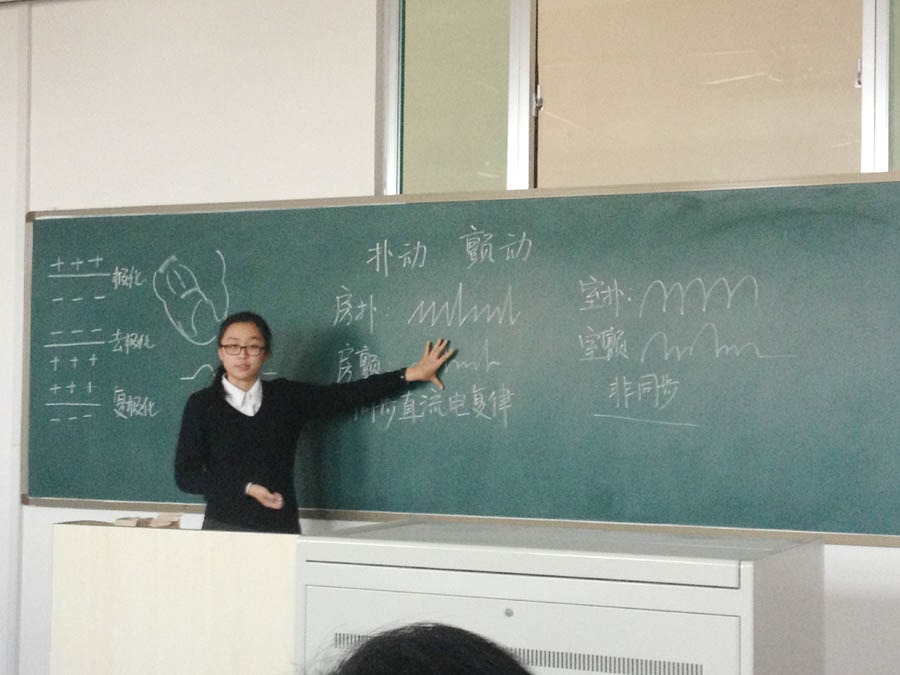 + + +
极化
- - -
- - -
去极化
+ + +
+ + +
复极化
- - -
扑动、颤动
房扑:
房颤:
同步直流电复律
室扑:
室颤
非同步